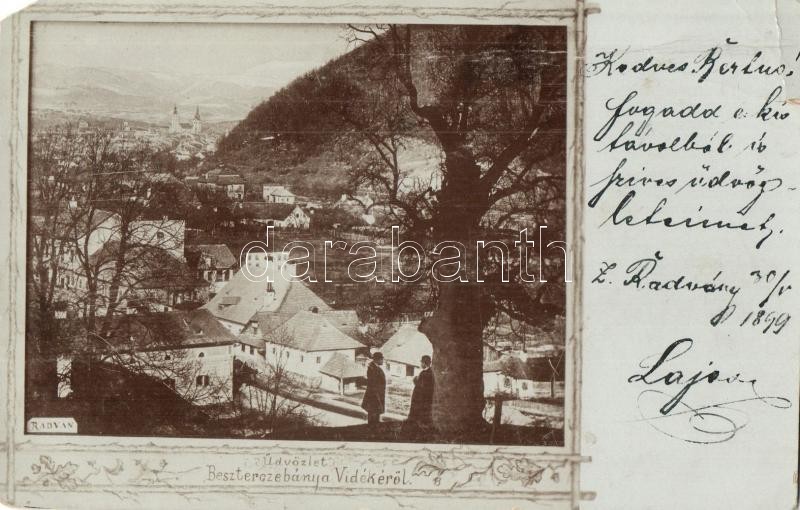 RADVAN
Üdvözlet
Beszterczebánya Vidékéről.
Kedves
fogadd e kis
távolból is
szives üdvöz-
leteimet,
Z. Radvány 30/V
1899
Lajos
darabanth